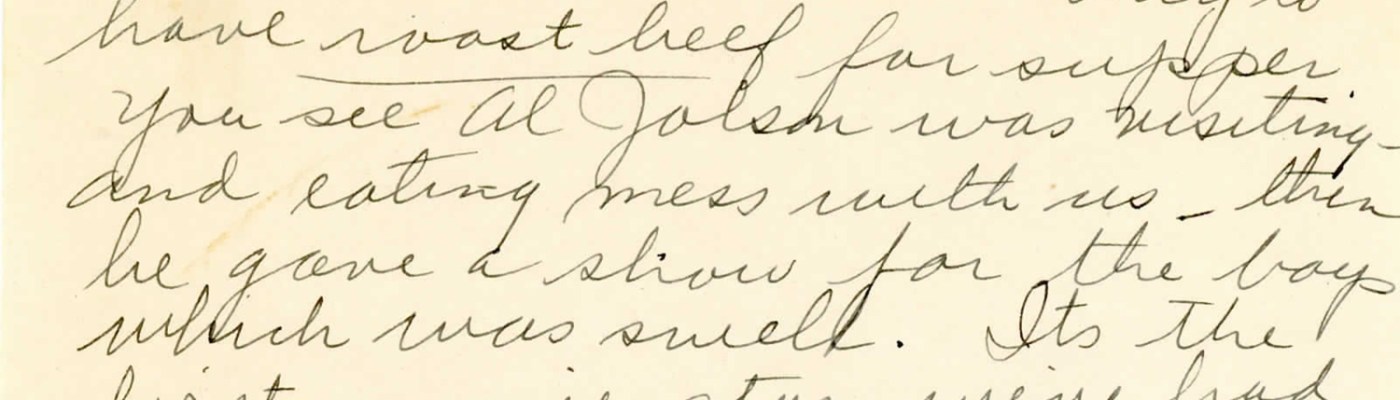 have roast beef for supper
You see Al Jolson was visiting-
and eating mess with us - then
he gave a show for the boys
which was swell. Its the